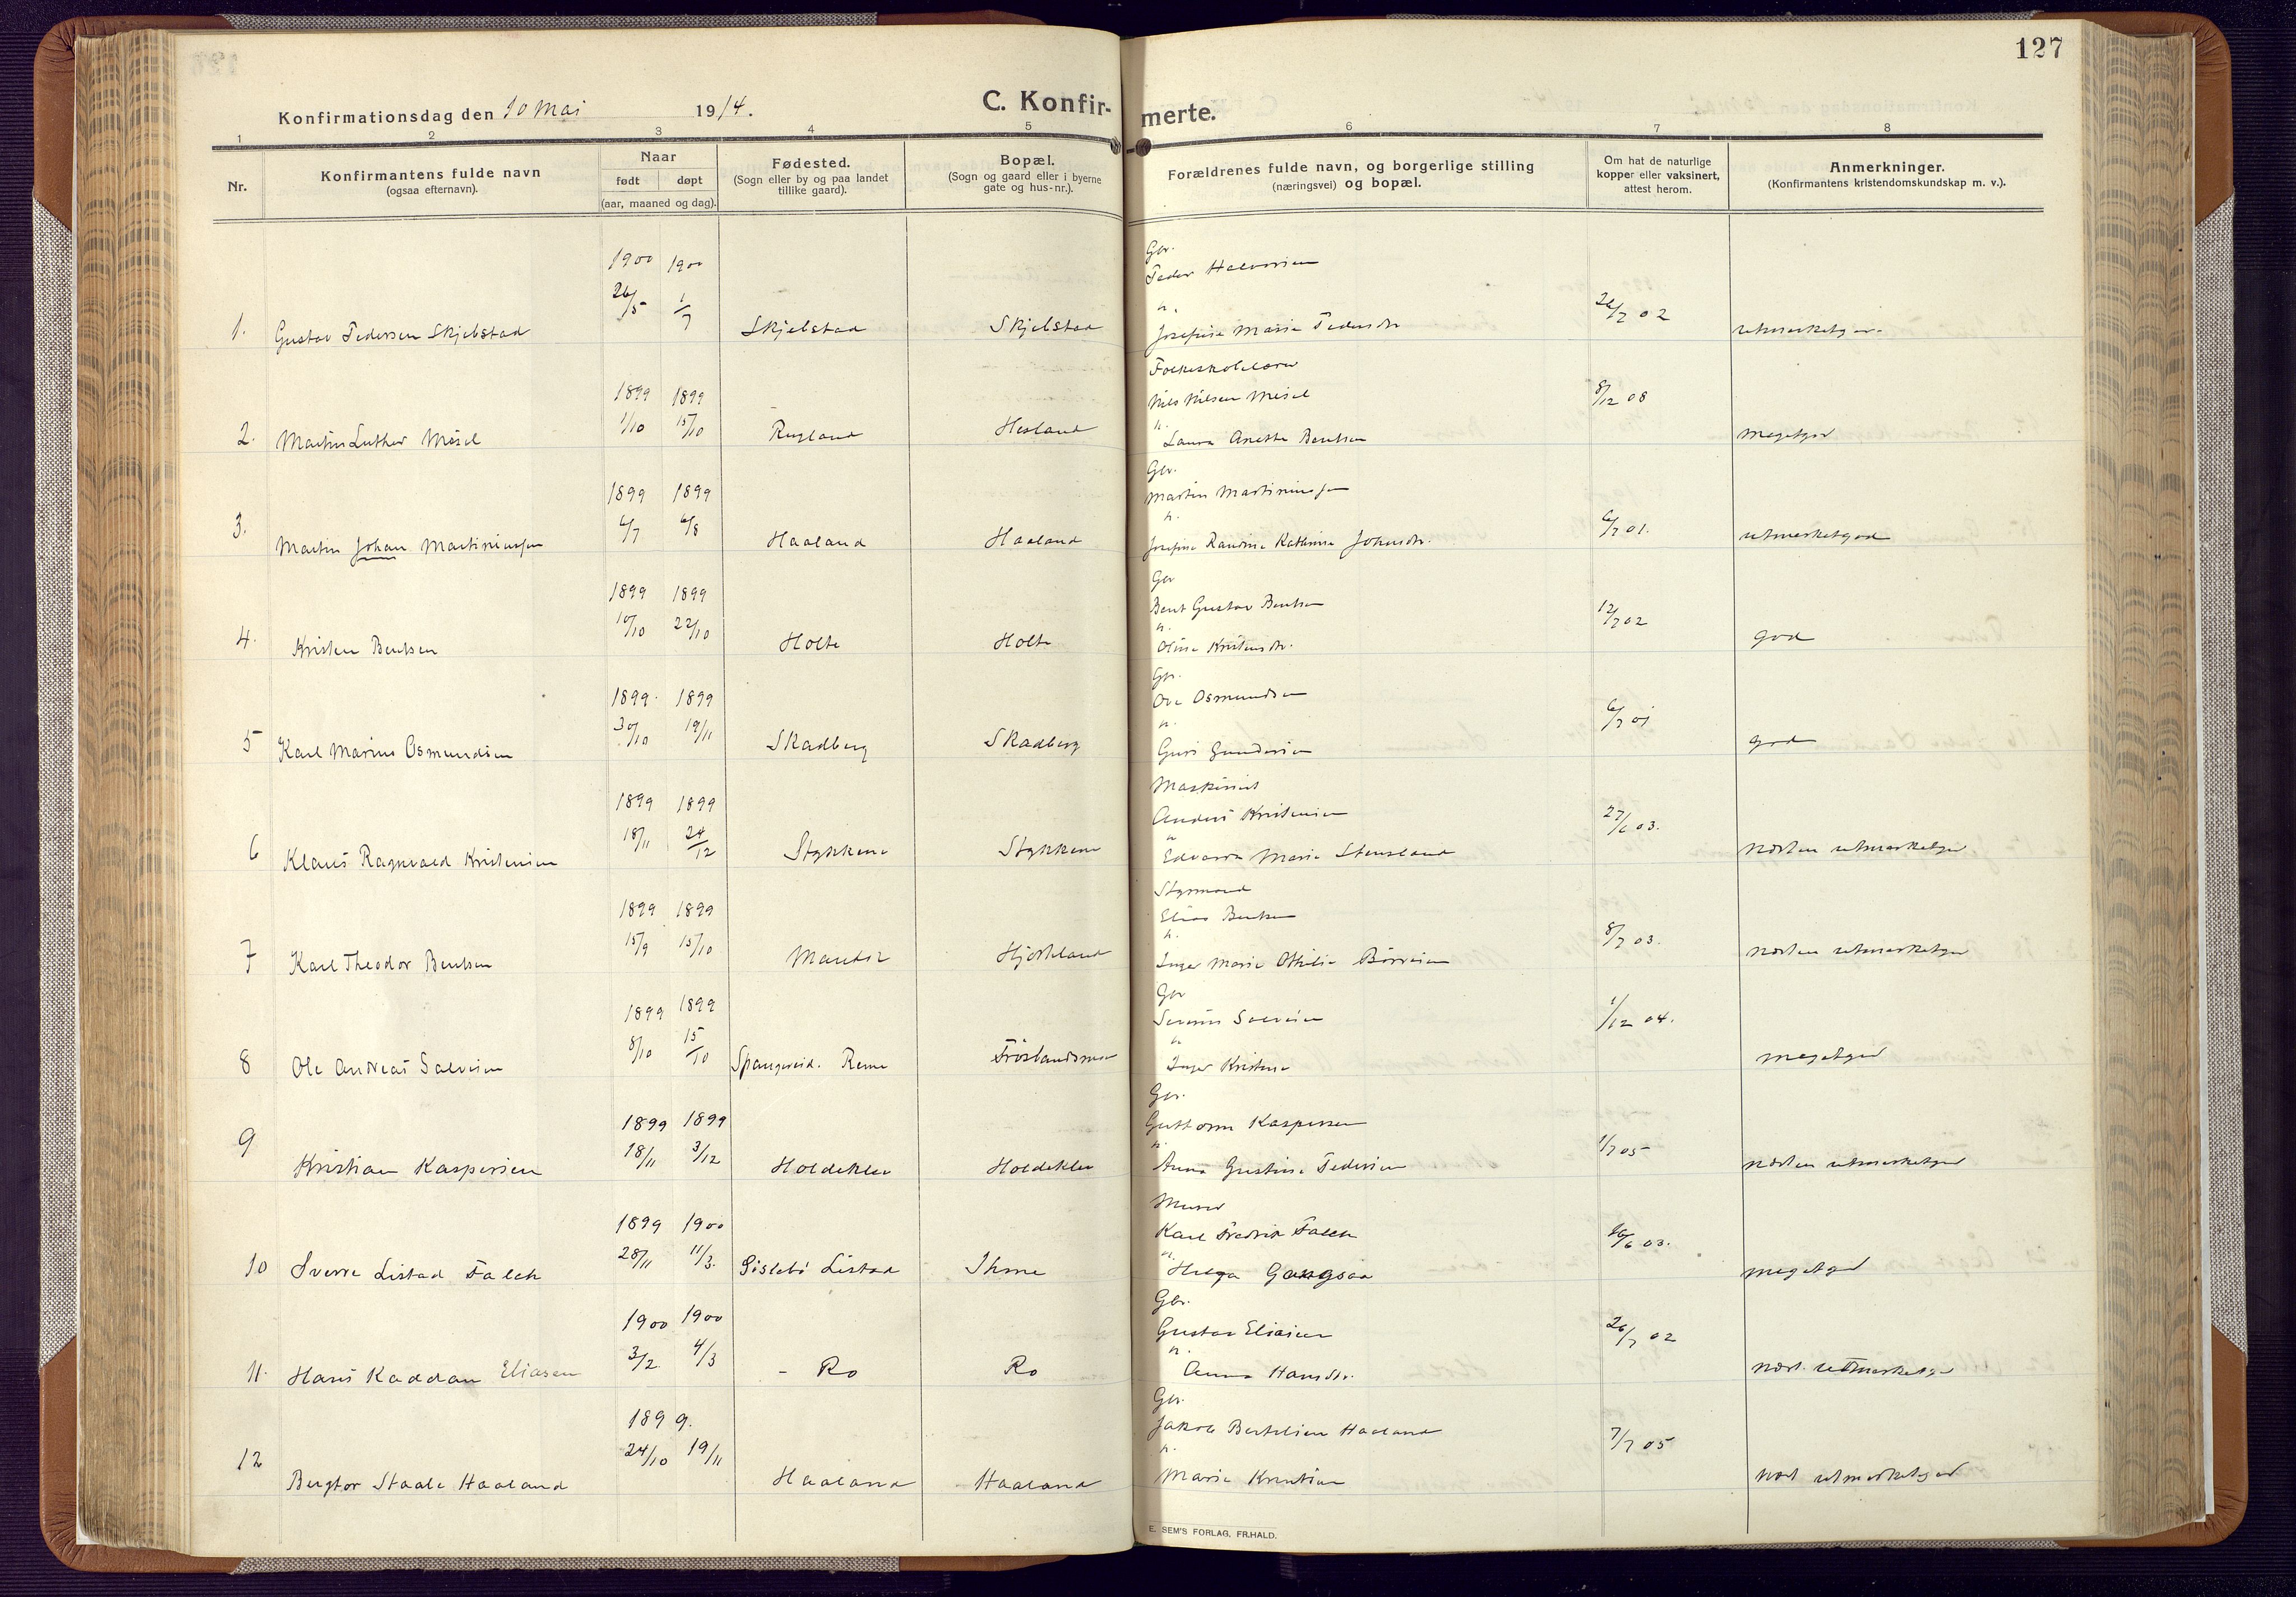 127
Konfirmationsdag den 10 Mai 1914.
C. Konfirmerte.
1 2 3 4 5 6 7 8
Nr.
Konfirmantens fulde navn
(ogsaa efternavn).
Naar
født døpt
(aar, maaned og dag).
Fødested.
(Sogn eller by og paa landet
tillike gaard).
Bopæl.
(Sogn og gaard eller i byerne
gate og hus-nr.).
Forældrenes fulde navn, og borgerlige stilling
(næringsvei) og bopæl.
Om hat de naturlige
kopper eller vaksinert,
attest herom.
Anmerkninger.
(Konfirmantens kristendomskundskap m. v.).
Gbr.
1900 1900
Peder Halvorsen
26/5 1/7
26/7 02
1. Gustav Pedersen Skjelstad Skjelstad Skjelstad Josefine Marie Pedersdtr. utmerketgod.
Folkeskolelærer
1899 1899 Nils Nilsen Mesel 8/12 08
1/10 15/10
2. Martin Luther Mesel Rugland Hesland Laura Anette Bentsen megetgod
Gbr.
1899 1899 Martin Martiniusen
6/7 6/8
3. Martin Johan Martiniusen Haaland Haaland Josefine Randine Kathrine Johnsdtr. 6/7 01. utmerketgod
Gbr
1899 1899 Bent Gustav Bentsen
10/10 22/10 12/7 02
4. Kristen Bentsen Holte Holte Oline Kristensdtr. god
Gbr.
1899 1899 Ove Osmundsen
30/10 19/11 6/7 01
5 Karl Marius Osmundsen Skadberg Skadberg Guri Gundersen god
Maskinist
1899 1899 Anders Kristensen
18/11 24/12 27/6 03.
6 Klaus Ragnvald Kristensen Stykkene Stykkene Edvarda Marie Stensland næsten utmerketgod
Styrmand
1899 1899 Elias Bentsen
15/9 15/10 8/7 03.
7 Karl Theodor Bentsen Mandal Hjortland Inger Marie Othilie næsten utmerketgod
Gbr
1899 1899 Salvesen 1/12 04.
8/10 15/10
8 Ole Andreas Salvesen Spangereid. Reme Frøslandsmoen Inger Kristine megetgod
Gbr.
1899 1899 Guttorm Kaspersen
18/11 3/12 1/7 05
9 Kristian Kaspersen Holdekler Holdekler Anna Gustine Pedersen næsten utmerketgod
Murer
1899 1900 Karl Fredrik Falck
28/11 11/3. 16/6 03.
10 Sverre Listad Falck Gislebø Listad Ihme Helga Gangsaa megetgod
Gbr.
1900 1900 Gustav Eliasen
3/2. 4/3 26/7 02
11. Hans Kaddan Eliasen - Ro Ro Anna Hansdtr. næst. utmerketgod
Gbr.
1899. Jakob Bertilsen Haaland
24/10 19/11 7/7 05
12 Bergtor Staale Haaland Haaland Haaland Marie næst utmerketgod
E. SEM'S FORLAG, FR.HALD.